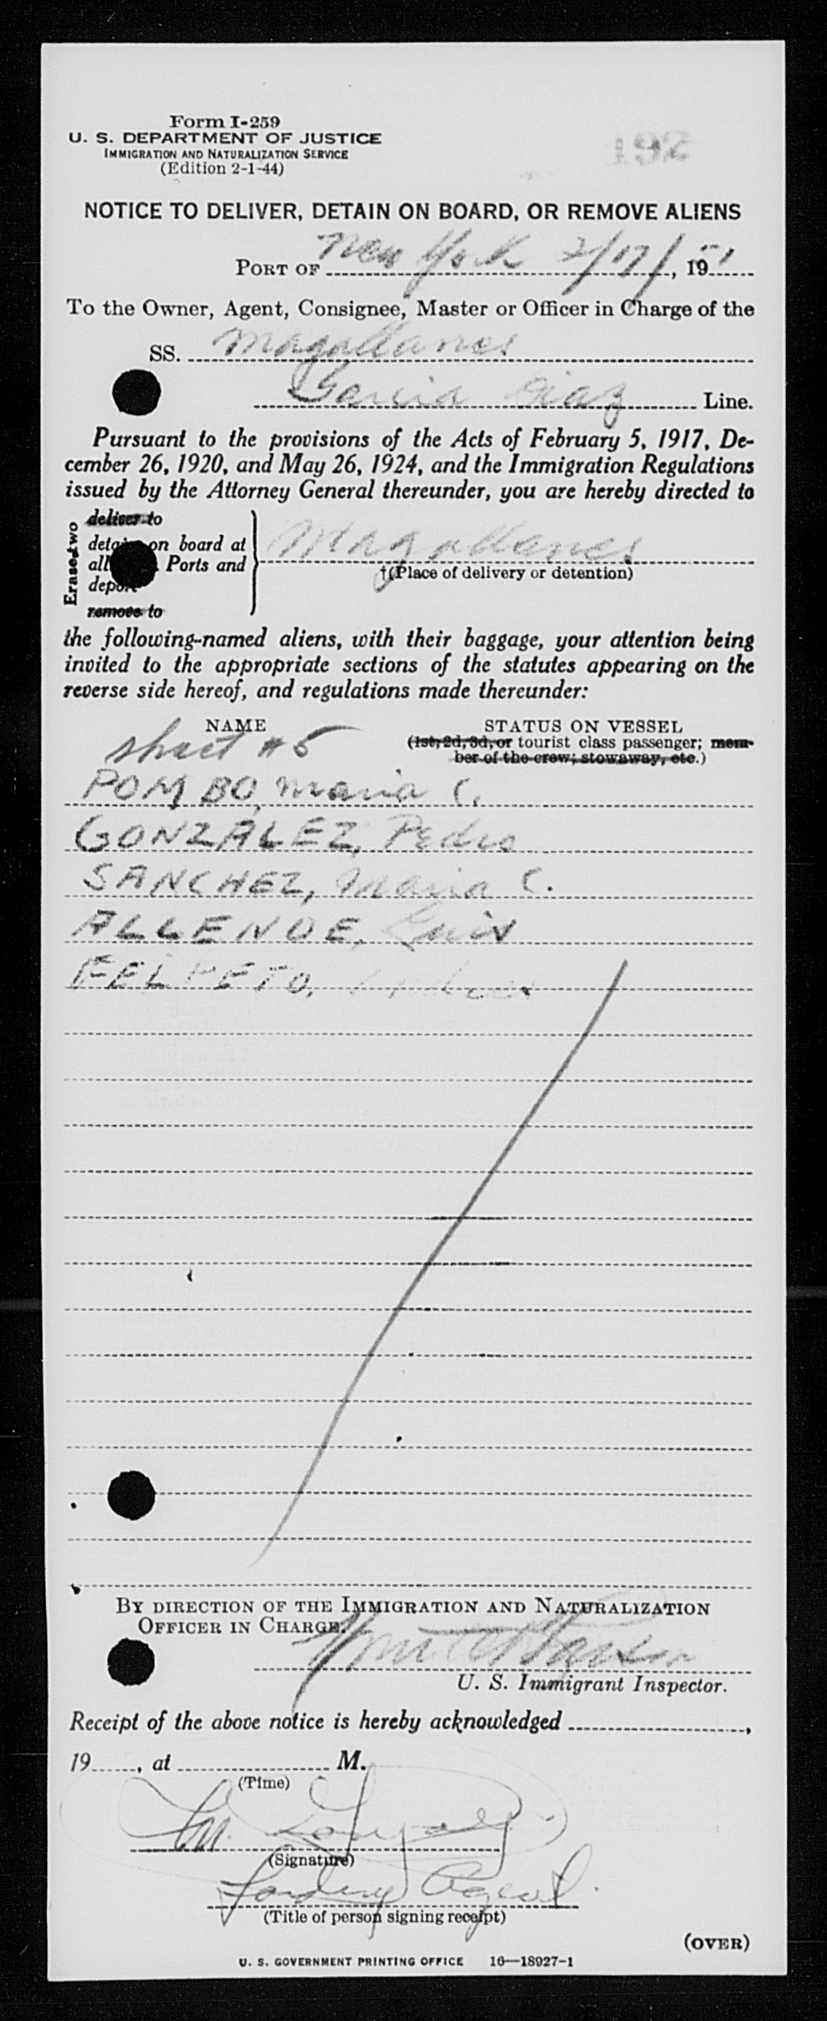 Form I-259
U. S. DEPARTMENT OF JUSTICE
IMMIGRATION AND NATURALIZATION SERVICE
(Edition 2-1-44)
192
NOTICE TO DELIVER, DETAIN ON BOARD, OR REMOVE ALIENS
PORT OF New York 2/17/, 1951
To the Owner, Agent, Consignee, Master or Officer in Charge of the
SS. Magallanes
Garcia Diaz Line.
Pursuant to the provisions of the Acts of February 5, 1917, De-
cember 26, 1920, and May 26, 1924, and the Immigration Regulations
issued by the Attorney General thereunder, you are hereby directed to
Erase two
deliver to
detain on board at
all Ports and
deport
remove to
Magallanes
†(Place of delivery or detention)
the following-named aliens, with their baggage, your attention being
invited to the appropriate sections of the statutes appearing on the
reverse side hereof, and regulations made thereunder:
NAME STATUS ON VESSEL
sheet #5 (1st, 2d, 3d, or tourist class passenger; mem-
ber of the crew; stowaway, etc.)
POMBO, Maria C.
GONZALEZ, Pedro
SANCHEZ, Maria C.
ALLENDE, Luis
FELPETO, Andres
BY DIRECTION OF THE IMMIGRATION AND NATURALIZATION
OFFICER IN CHARGE.
U. S. Immigrant Inspector.
Receipt of the above notice is hereby acknowledged ,
19 , at M.
(Time)
(Signature)
Landing Agent.
(Title of person signing receipt)
(OVER)
U. S. GOVERNMENT PRINTING OFFICE 16—18927-1